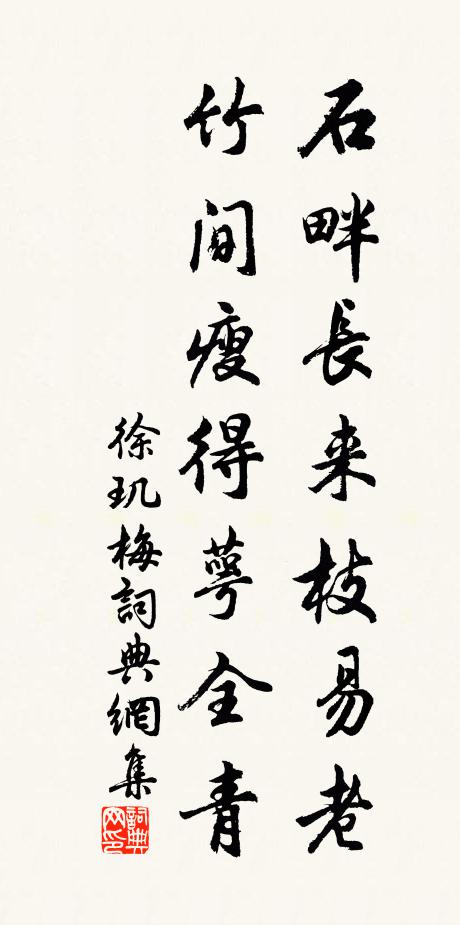 石畔長来枝易老
竹間瘦得萼全青
徐玑梅詞典網集
詞典网印